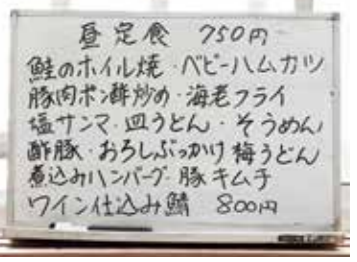 昼定食 750円
鮭のホイル焼・ベビーハムカツ
豚肉ポン酢炒め・海老フライ
塩サンマ・皿うどん・そうめん
酢豚・おろしぶっかけ梅うどん
煮込みハンバーグ・豚キムチ
ワイン仕込み鯖 800円